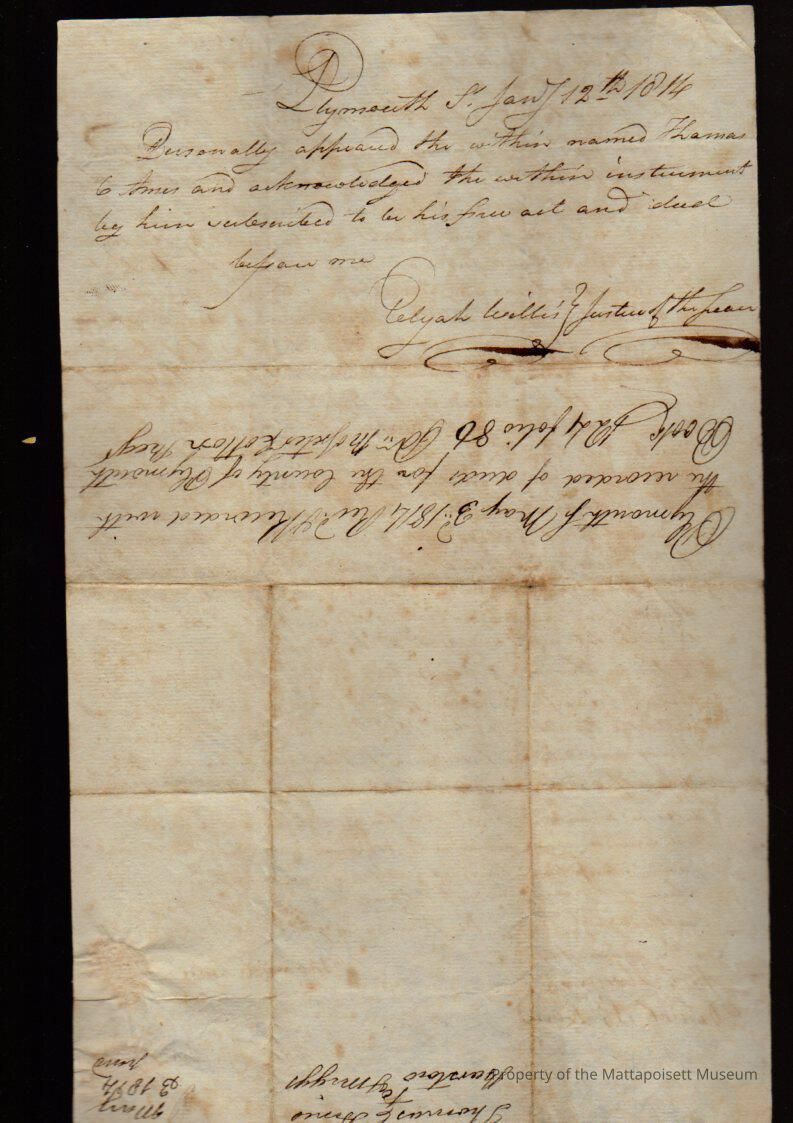 Plymouth Ss. Jany 12th 1814
Personally appeared the within named Thomas
C Ames and acknowledged the within instrument
by him subscribed to be his free act and deed
before me
Elijah Willis } Justice of the peace
Plymouth Ss May 3d 1814 Recd & Recorded with
the records of deeds for the County of Plymouth
Book 124 folio 80 Rossiter Cotton Regr
Thomas C Ames
to
Barstow & Meggs
May
3 1814
Property of the Mattapoisett Museum